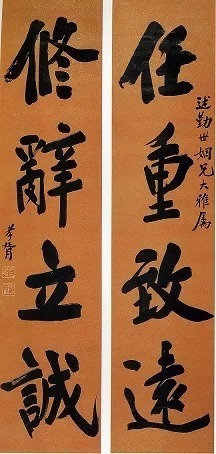 任重致遠
述勤世姻兄大雅屬
修辭立誠
孝胥